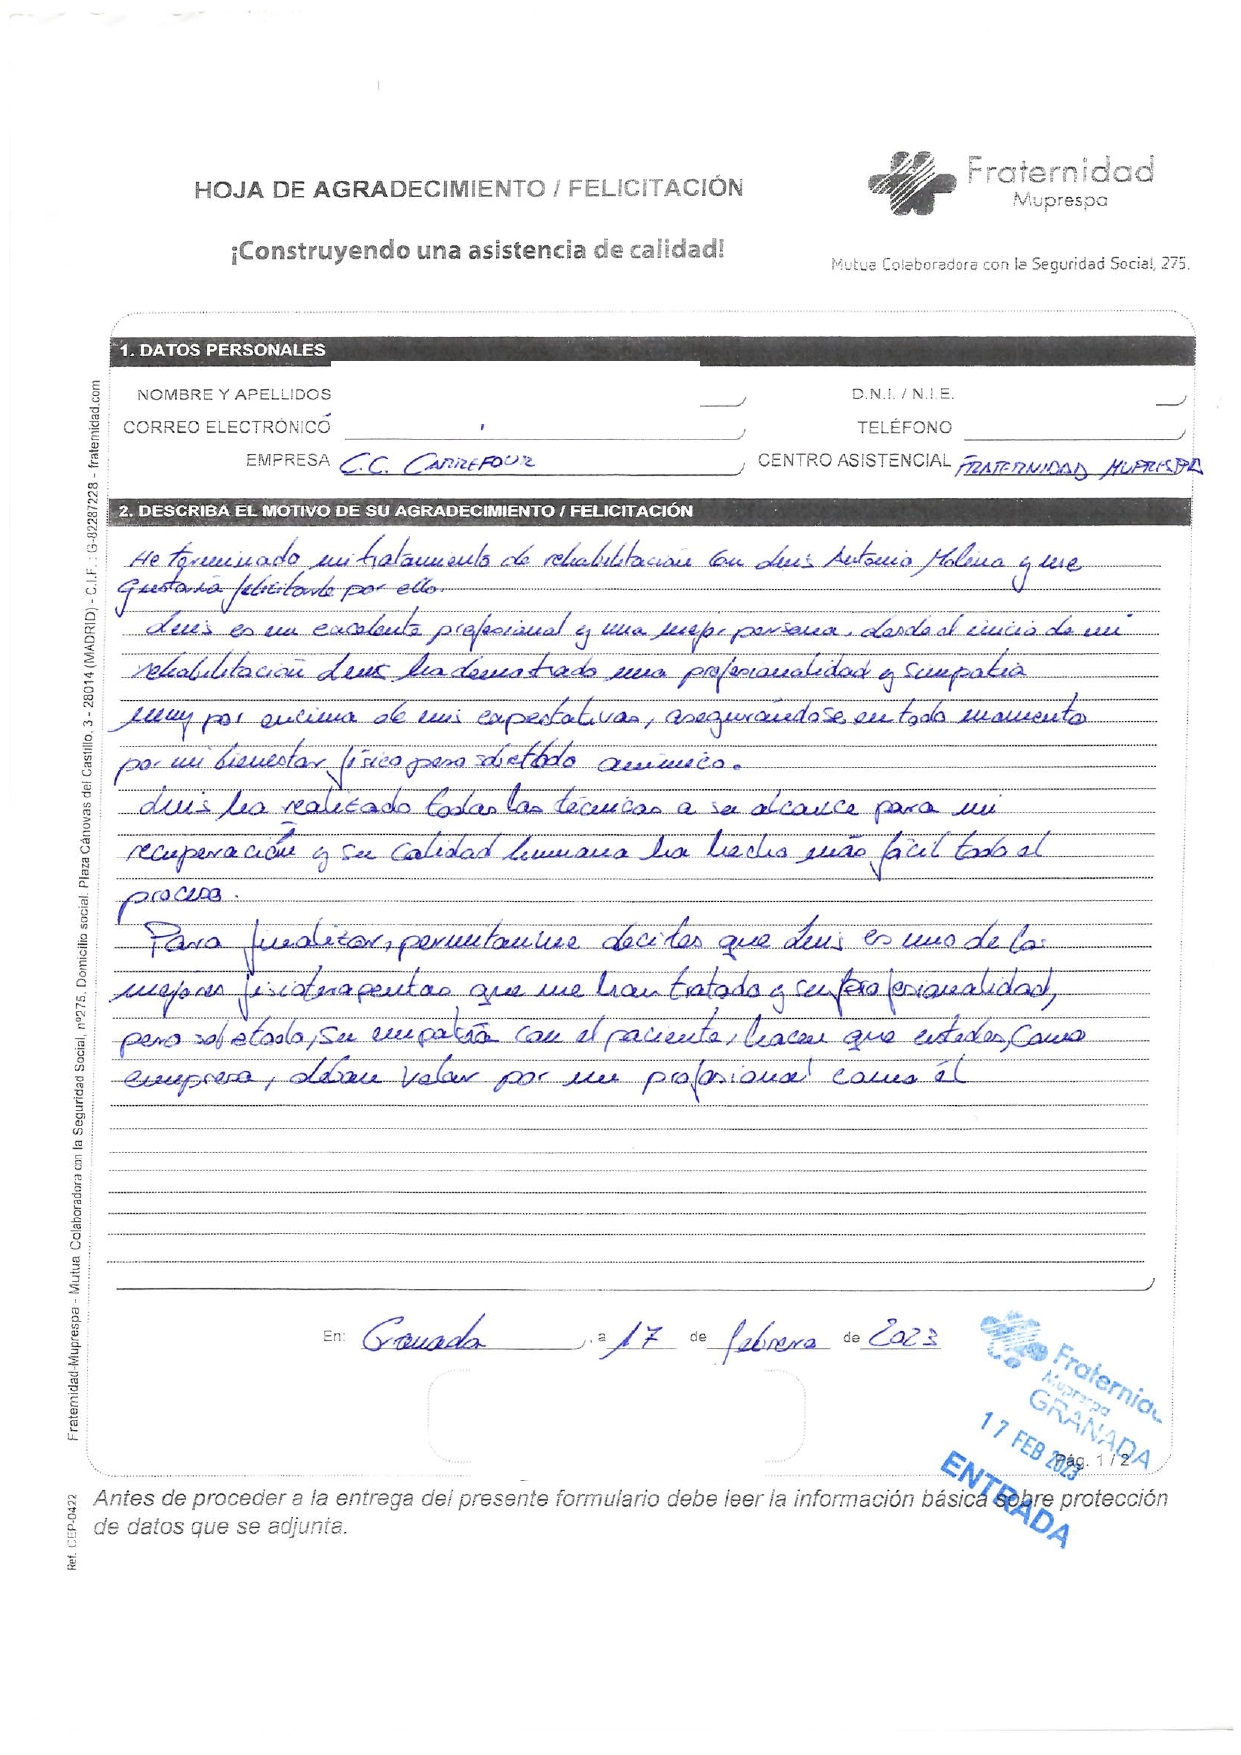 HOJA DE AGRADECIMIENTO / FELICITACIÓN
¡Construyendo una asistencia de calidad!
Fraternidad
Muprespa
Mutua Colaboradora con la Seguridad Social, 275.
1. DATOS PERSONALES
NOMBRE Y APELLIDOS
D.N.I. / N.I.E.
CORREO ELECTRÓNICO
TELÉFONO
EMPRESA C.C. CARREFOUR
CENTRO ASISTENCIAL FRATERNIDAD MUPRESPA
2. DESCRIBA EL MOTIVO DE SU AGRADECIMIENTO / FELICITACIÓN
He terminado mi tratamiento de rehabilitación con Luis Antonio Molina y me
gustaría felicitarle por ello.
Luis es un excelente profesional y una mejor persona, desde el inicio de mi
rehabilitación Luis ha demostrado una profesionalidad y simpatía
muy por encima de mis expectativas, asegurándose en todo momento
por mi bienestar físico pero sobretodo anímico.
Luis ha realizado todas las técnicas a su alcance para mi
recuperación y su calidad humana ha hecho más fácil todo el
proceso.
Para finalizar, permítanme decirles que Luis es uno de los
mejores fisioterapeutas que me han tratado y su profesionalidad,
pero sobretodo, su empatía con el paciente, hacen que ustedes, como
empresa, deban velar por un profesional como él
En: Granada, a 17 de febrero de 2023
Fraternidad
Muprespa
GRANADA
17 FEB 2023
ENTRADA
Pág. 1 / 2
Antes de proceder a la entrega del presente formulario debe leer la información básica sobre protección
de datos que se adjunta.
Fraternidad-Muprespa - Mutua Colaboradora con la Seguridad Social, nº275. Domicilio social: Plaza Cánovas del Castillo, 3 - 28014 (MADRID) - C.I.F. : G-82287228 - fraternidad.com
Ref. CEP-0422